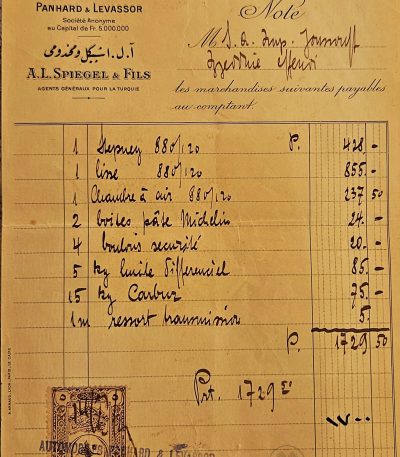 PANHARD & LEVASSOR
Société Anonyme
au Capital de Fr. 5.000.000
A. L. SPIEGEL & FILS
AGENTS GÉNÉRAUX POUR LA TURQUIE
Note
M S. A. Imp.
Effendi
les marchandises suivantes payables
au comptant.
1 Stepney 880/120 P. 428 -
1 880/120 855 -
1 Chambre à air 880/120 237 50
2 boîtes pâte Michelin 24 -
4 boulons securité 20 -
5 kg huile Differenciel 85 -
15 kg Carbur 75 -
1m ressort transmission 5 -
P. 1729 50
Prt. 1729 50
١٧٠٠
AUTOMOBILES PANHARD & LEVASSOR